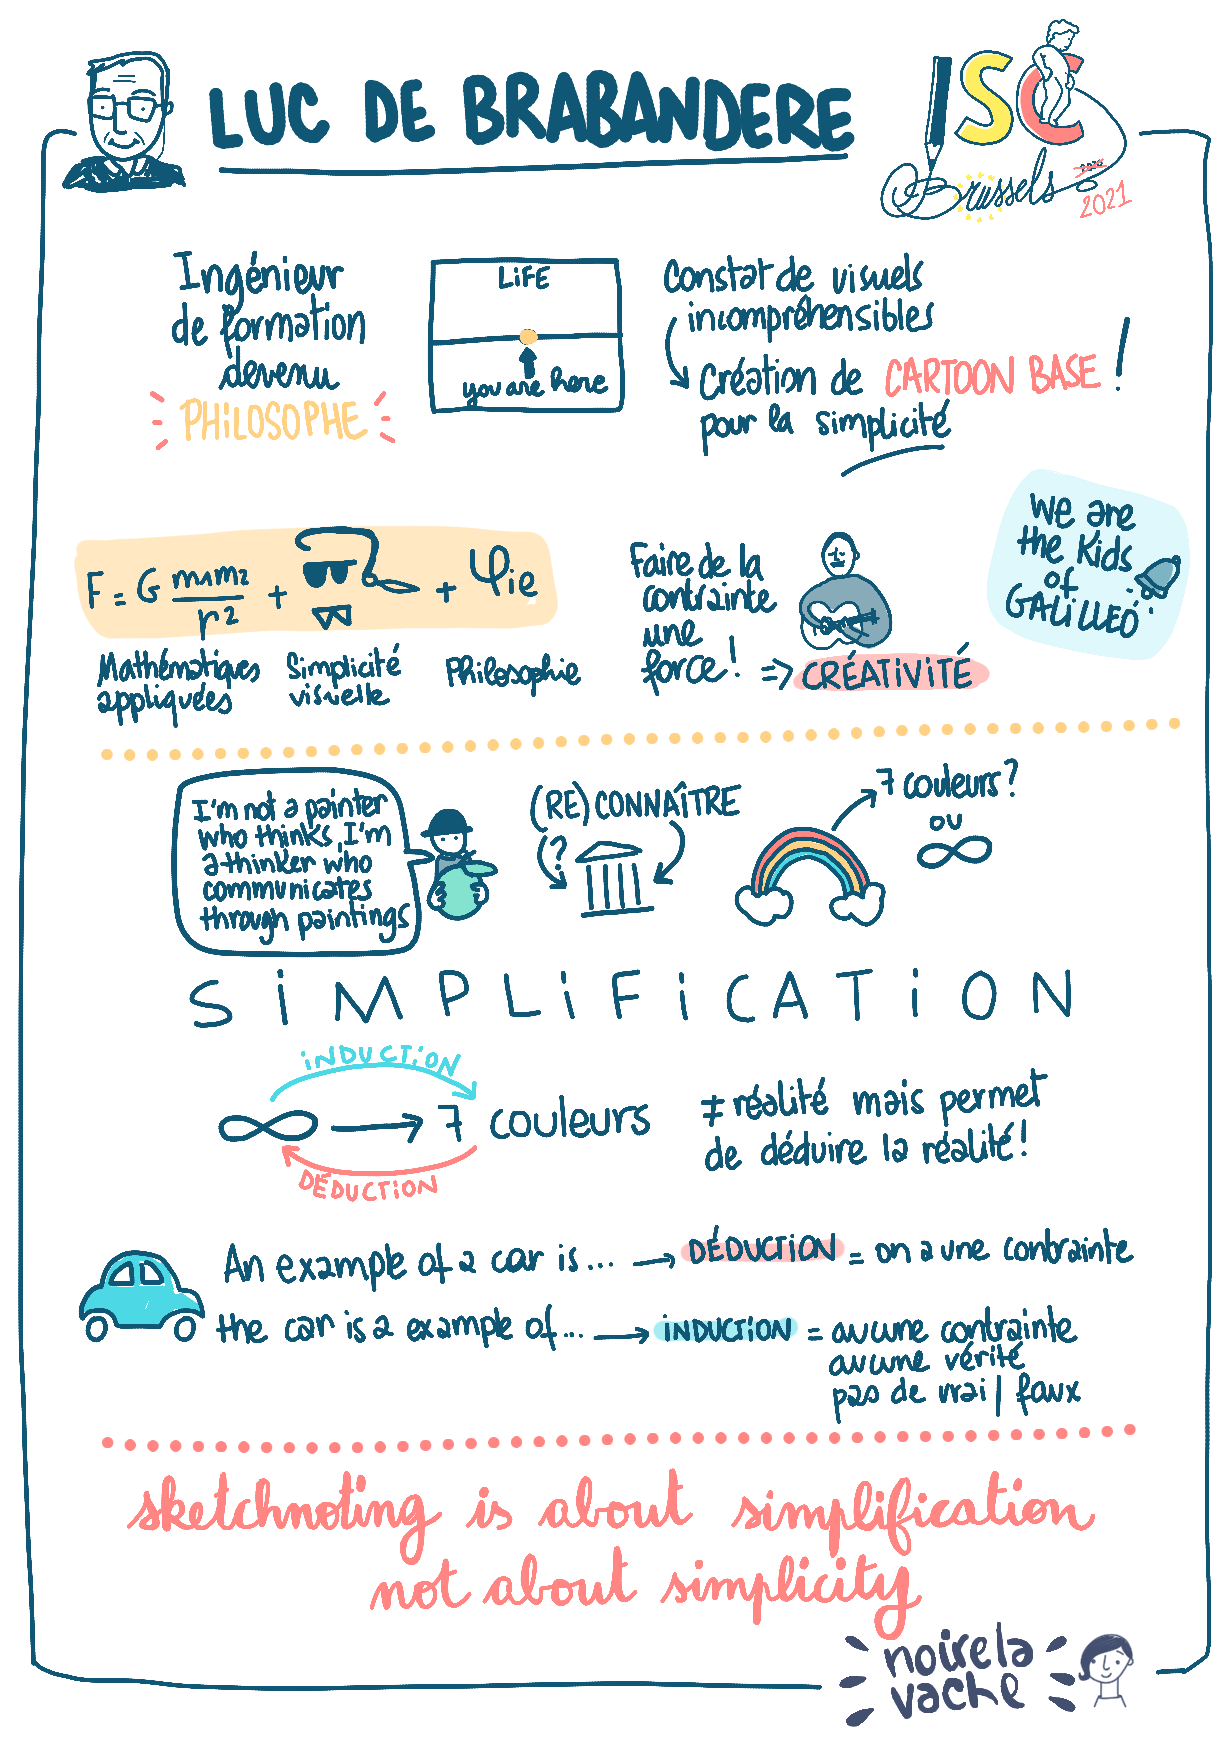 LUC DE BRABANDERE
ISC
Brussels
2020
2021
Ingénieur
de formation
devenu
PHILOSOPHE
LIFE
you are here
Constat de visuels
incompréhensibles
Création de CARTOON BASE !
pour la simplicité
F = G m1m2 / r2 + + φie
Mathématiques
appliquées
Simplicité
visuelle
Philosophie
Faire de la
contrainte
une
force ! => CRÉATIVITÉ
We are
the Kids
of
GALILLEO
I'm not a painter
who thinks, I'm
a thinker who
communicates
through paintings
(RE)CONNAÎTRE
?
7 couleurs ?
ou
∞
SIMPLIFICATION
INDUCTION
∞ → 7 couleurs
DÉDUCTION
≠ réalité mais permet
de déduire la réalité !
An example of a car is... → DÉDUCTION = on a une contrainte
the car is a example of... → INDUCTION = aucune contrainte
aucune vérité
pas de vrai / faux
sketchnoting is about simplification
not about simplicity
noise la
vache